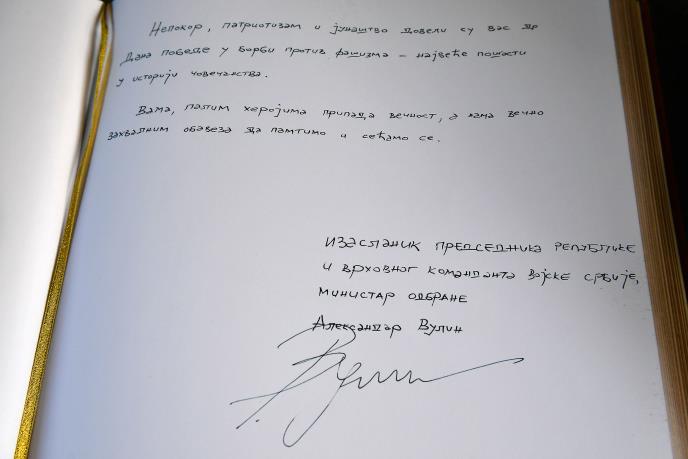 Непокор, патриотизам и јунаштво довели су вас до
Дана победе у борби против фашизма – највеће пошасти
у историји човечанства.
Вама, палим херојима припада вечност, а нама вечно
захвалним обавеза да памтимо и сећамо се.
ИЗАСЛАНИК ПРЕДСЕДНИКА РЕПУБЛИКЕ
И ВРХОВНОГ КОМАНДАНТА ВОЈСКЕ СРБИЈЕ,
МИНИСТАР ОДБРАНЕ
Александар Вулин